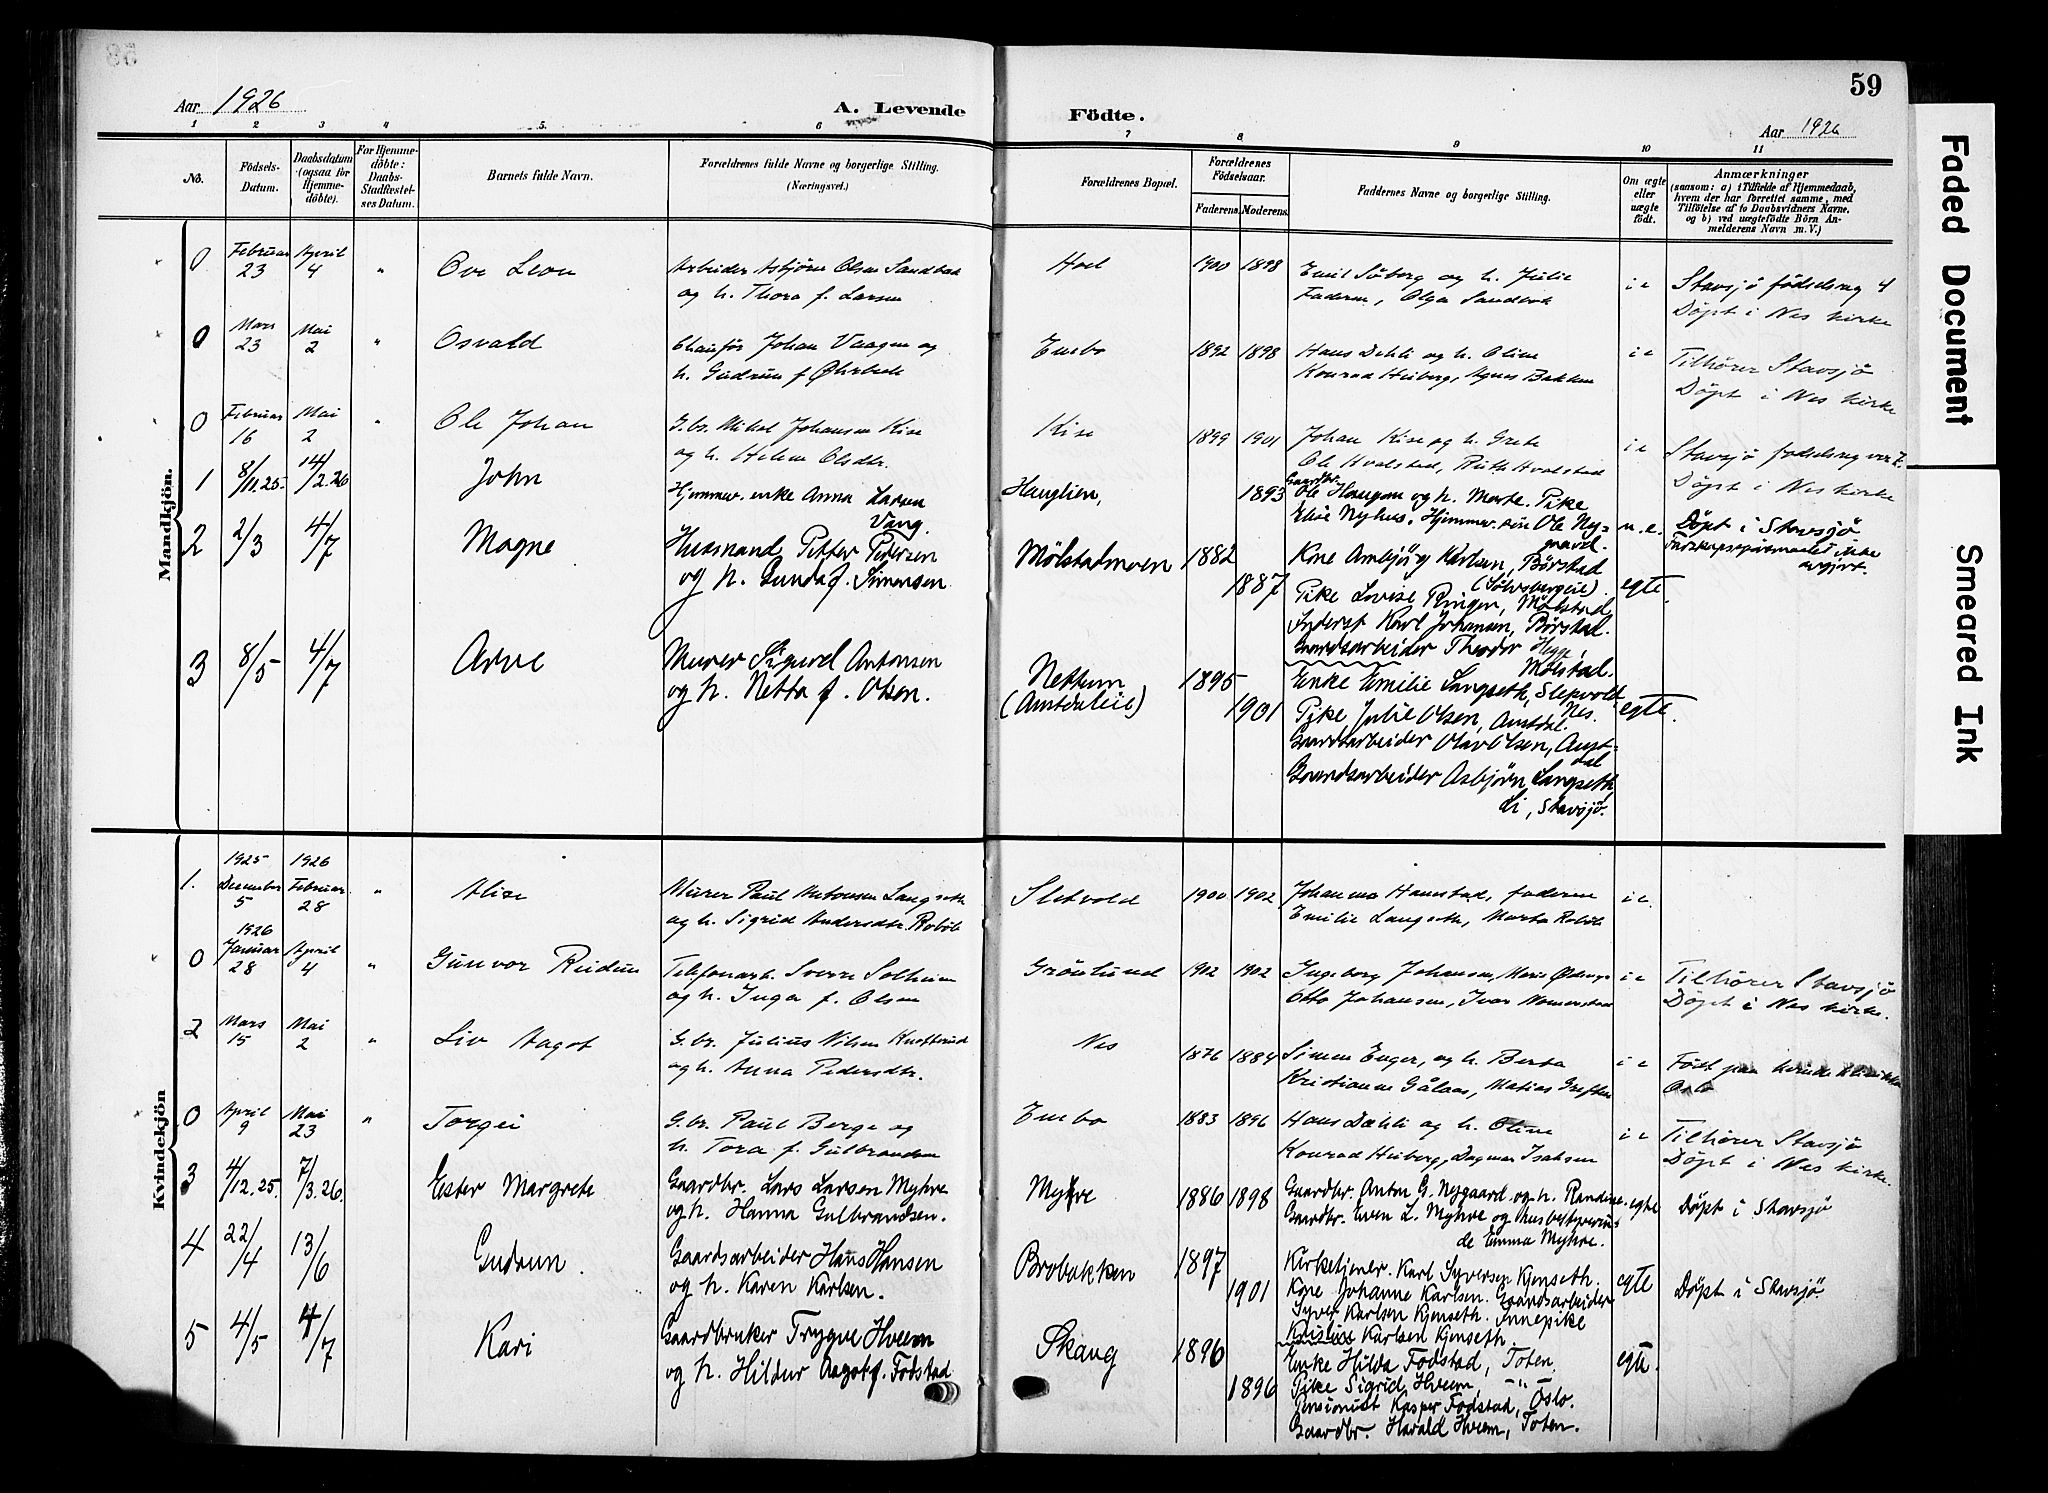 59
Aar 1926
A. Levende
Födte.
Aar 1926
1 2 3 4 5. 6 7 8 9 10 11
No.
Födsels-
Datum.
Daabsdatum
(ogsaa for
Hjemme-
döbte).
For Hjemme-
döbte:
Daabs-
Stadfæstel-
ses Datum.
Barnets fulde Navn.
Forældrenes fulde Navne og borgerlige Stilling.
(Næringsvei.)
Forældrenes Bopæl.
Forældrenes
Födselsaar.
Faderens. Moderens.
Faddernes Navne og borgerlige Stilling.
Om ægte
eller
uægte
födt.
Anmærkninger
(saasom: a) i Tilfælde af Hjemmedaab,
hvem der har forrettet samme, med
Tilföielse af to Daabsvidners Navne.
og b) ved uægtefödte Börn An-
melderens Navn m.V.)
Mandkjön.
0 Februar 23 April 4 " Ove Leon
Arbeider Asbjörn Olsen Sandbak
og h. Thora f. Larsen
Hoel 1900 1898
Emil Söberg og h. Julie
Faderen, Olga Sandbak
i e
Stavsjö födselsreg 4
Döpt i Nes kirke
0 Mars 23 Mai 2 " Osvald
Chaufför Johan Vaagen og
h. Gudrun f
Enebo 1892 1898
Hans Dehli og h. Oline
Konrad Huberg, Agnes Bakken
i e
Tilhörer Stavsjö
Döpt i Nes kirke
0 Februar 16 Mai 2 " Ole Johan
G.br. Mikal Johansen Kise
og h. Helene Olsdtr.
Kise 1899 1901
Johan Kise og h. Grete
Ole Hvalstad, Ruth Hvalstad
i e
Stavsjö födselsreg
Döpt i Nes kirke
1 8/11.25. 14/2.26 John
Hjemmev. enke Anna Larsen
Vang.
Hauglien, 1893
Gaardbr.
Ole Haugen og h. Marte. Pike
Elise Nyhus. Hjemmev. Ole Ny-
gaard.
u.e.
Döpt i Stavsjö
ikke
avgjort.
2 2/3 4/7 Magne
Husmand Petter Pedersen
og h. Gunda f. Simensen
Mölstadmoen 1882 1887
Kone Ambjörg Karlsen, Börstad
(Sölvsbergeie)
Pike Lovise Ringen, Mölstad.
Inderst Karl Johansen, Börstad.
Gaardsarbeider Theodor Hegge,
Mölstad.
egte
3 8/5 4/7 Arve
Murer Sigurd Antonsen
og h. Netta f. Olsen.
Nettum
(Amtdaleie) 1895 1901
Enke Emilie Langseth, Slepvold
Nes.
Pike Julie Olsen, Austdal.
Gaardsarbeider Olav Olsen, Aust-
dal
Gaardsarbeider Asbjörn Langseth,
Li, Stavsjö.
egte.
Kvindekjön
1. 1925 Desember 5 1926 Februar 28 " Alise
Murer Paul Antonsen Langseth
og h. Sigrid Andersdtr.
Sletvold 1900 1902
Johanna Hamstad, faderen
Emilie Langseth, Marta
i e.
0 1926 Januar 28 April 4 " Gunvor Reidun
Telefonarb. Sverre Solheim
og h. Inga f. Olsen
Grönlund 1902 1902
Ingeborg Johansen, Marie
Otto Johansen, Ivar
i e
Tilhörer Stavsjö
Döpt i Nes kirke.
2 Mars 15 Mai 2 " Liv Aagot
G.br. Julius Nilsen
og h. Anna Pedersdtr.
Nes 1876 1884
Simen Enger, og h. Berta
Kristianne Gålaas, Matias Greften
i e
Född paa kvindeklinikken
Oslo
0 April 9 Mai 23 " Torgei
G.br. Paul Berge og
h. Tora f. Gulbrandsen
Enebo 1883 1896
Hans Dæhli og h. Oline
Konrad Huberg, Dagmar Isaksen
i e
Tilhörer Stavsjö
Döpt i Nes kirke.
3 4/12.25. 7/3.26. Ester Margrete
Gaardbr. Lars Larsen Myhre
og h. Hanna Gulbrandsen.
Myhre 1886 1898
Gaardbr. Anton G. Nygaard og h. Randine.
Gaardbr. Even L. Myhre og husbestyrerin-
de Emma Myhre.
egte
Döpt i Stavsjö
4 22/4 13/6 Gudrun.
Gaardsarbeider Hans Hansen
og h. Karen Karlsen.
Brobakken 1897 1901
Kirketjener. Karl Syversen Kjenseth.
Kone Johanne Karlsen. Gaardsarbeider
Syver Karlsen Kjenseth. Innepike
Kristine Karlsen Kjenseth.
egte
Döpt i Stavsjö
5 4/5 4/7 Kari
Gaardbruker Trygve Hveem
og h. Hildur Aagot f. Fodstad
Skaug 1896 1896
Enke Hilda Fodstad, Toten.
Pike Sigrid Hveem, –"–
Pensionist Kasper Fodstad, Oslo.
Gaardbr. Harald Hveem, Toten.
egte.
Faded Document
Smeared Ink